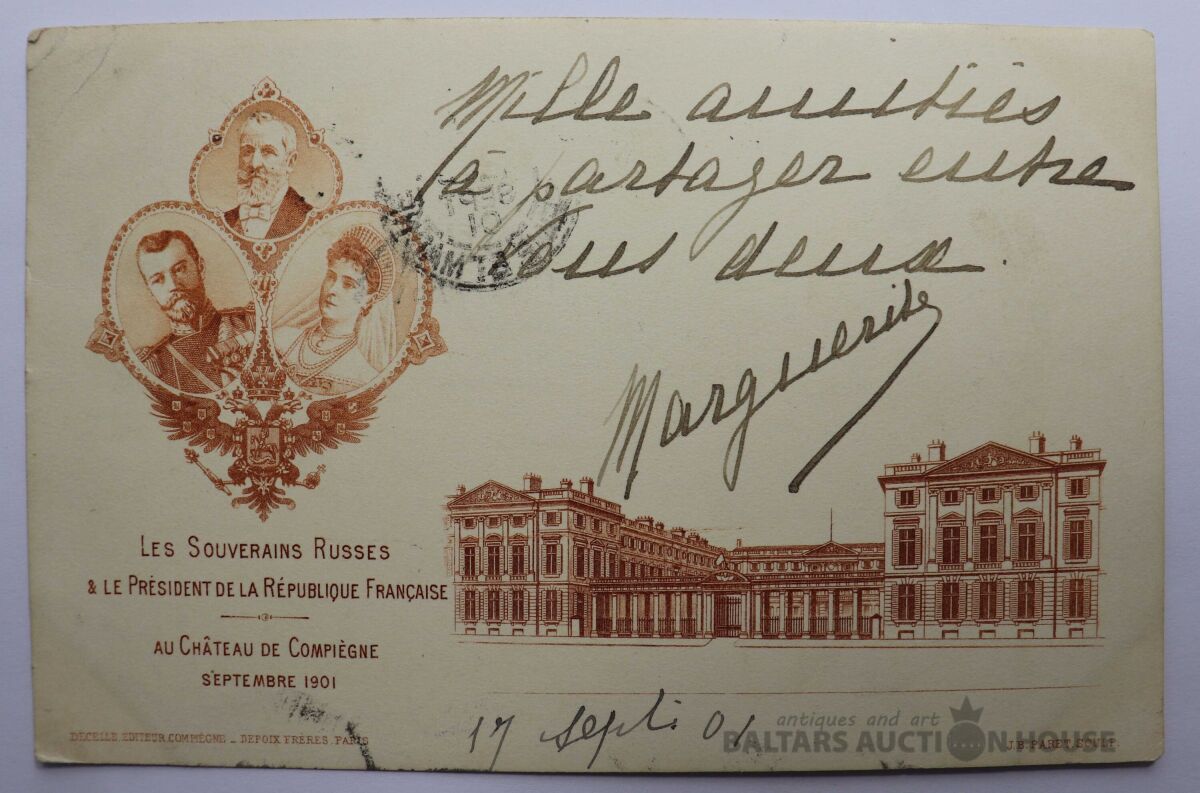 Mille amitiés
à partager entre
vous deux.
Marguerite
LES SOUVERAINS RUSSES
& LE PRÉSIDENT DE LA RÉPUBLIQUE FRANÇAISE
AU CHÂTEAU DE COMPIÈGNE
SEPTEMBRE 1901
17 sept. 01
DECELLE, EDITEUR, COMPIÈGNE _ DEPOIX FRÈRES, PARIS
J.B. PARET, SCULP.
antiques and art
BALTARS AUCTION HOUSE